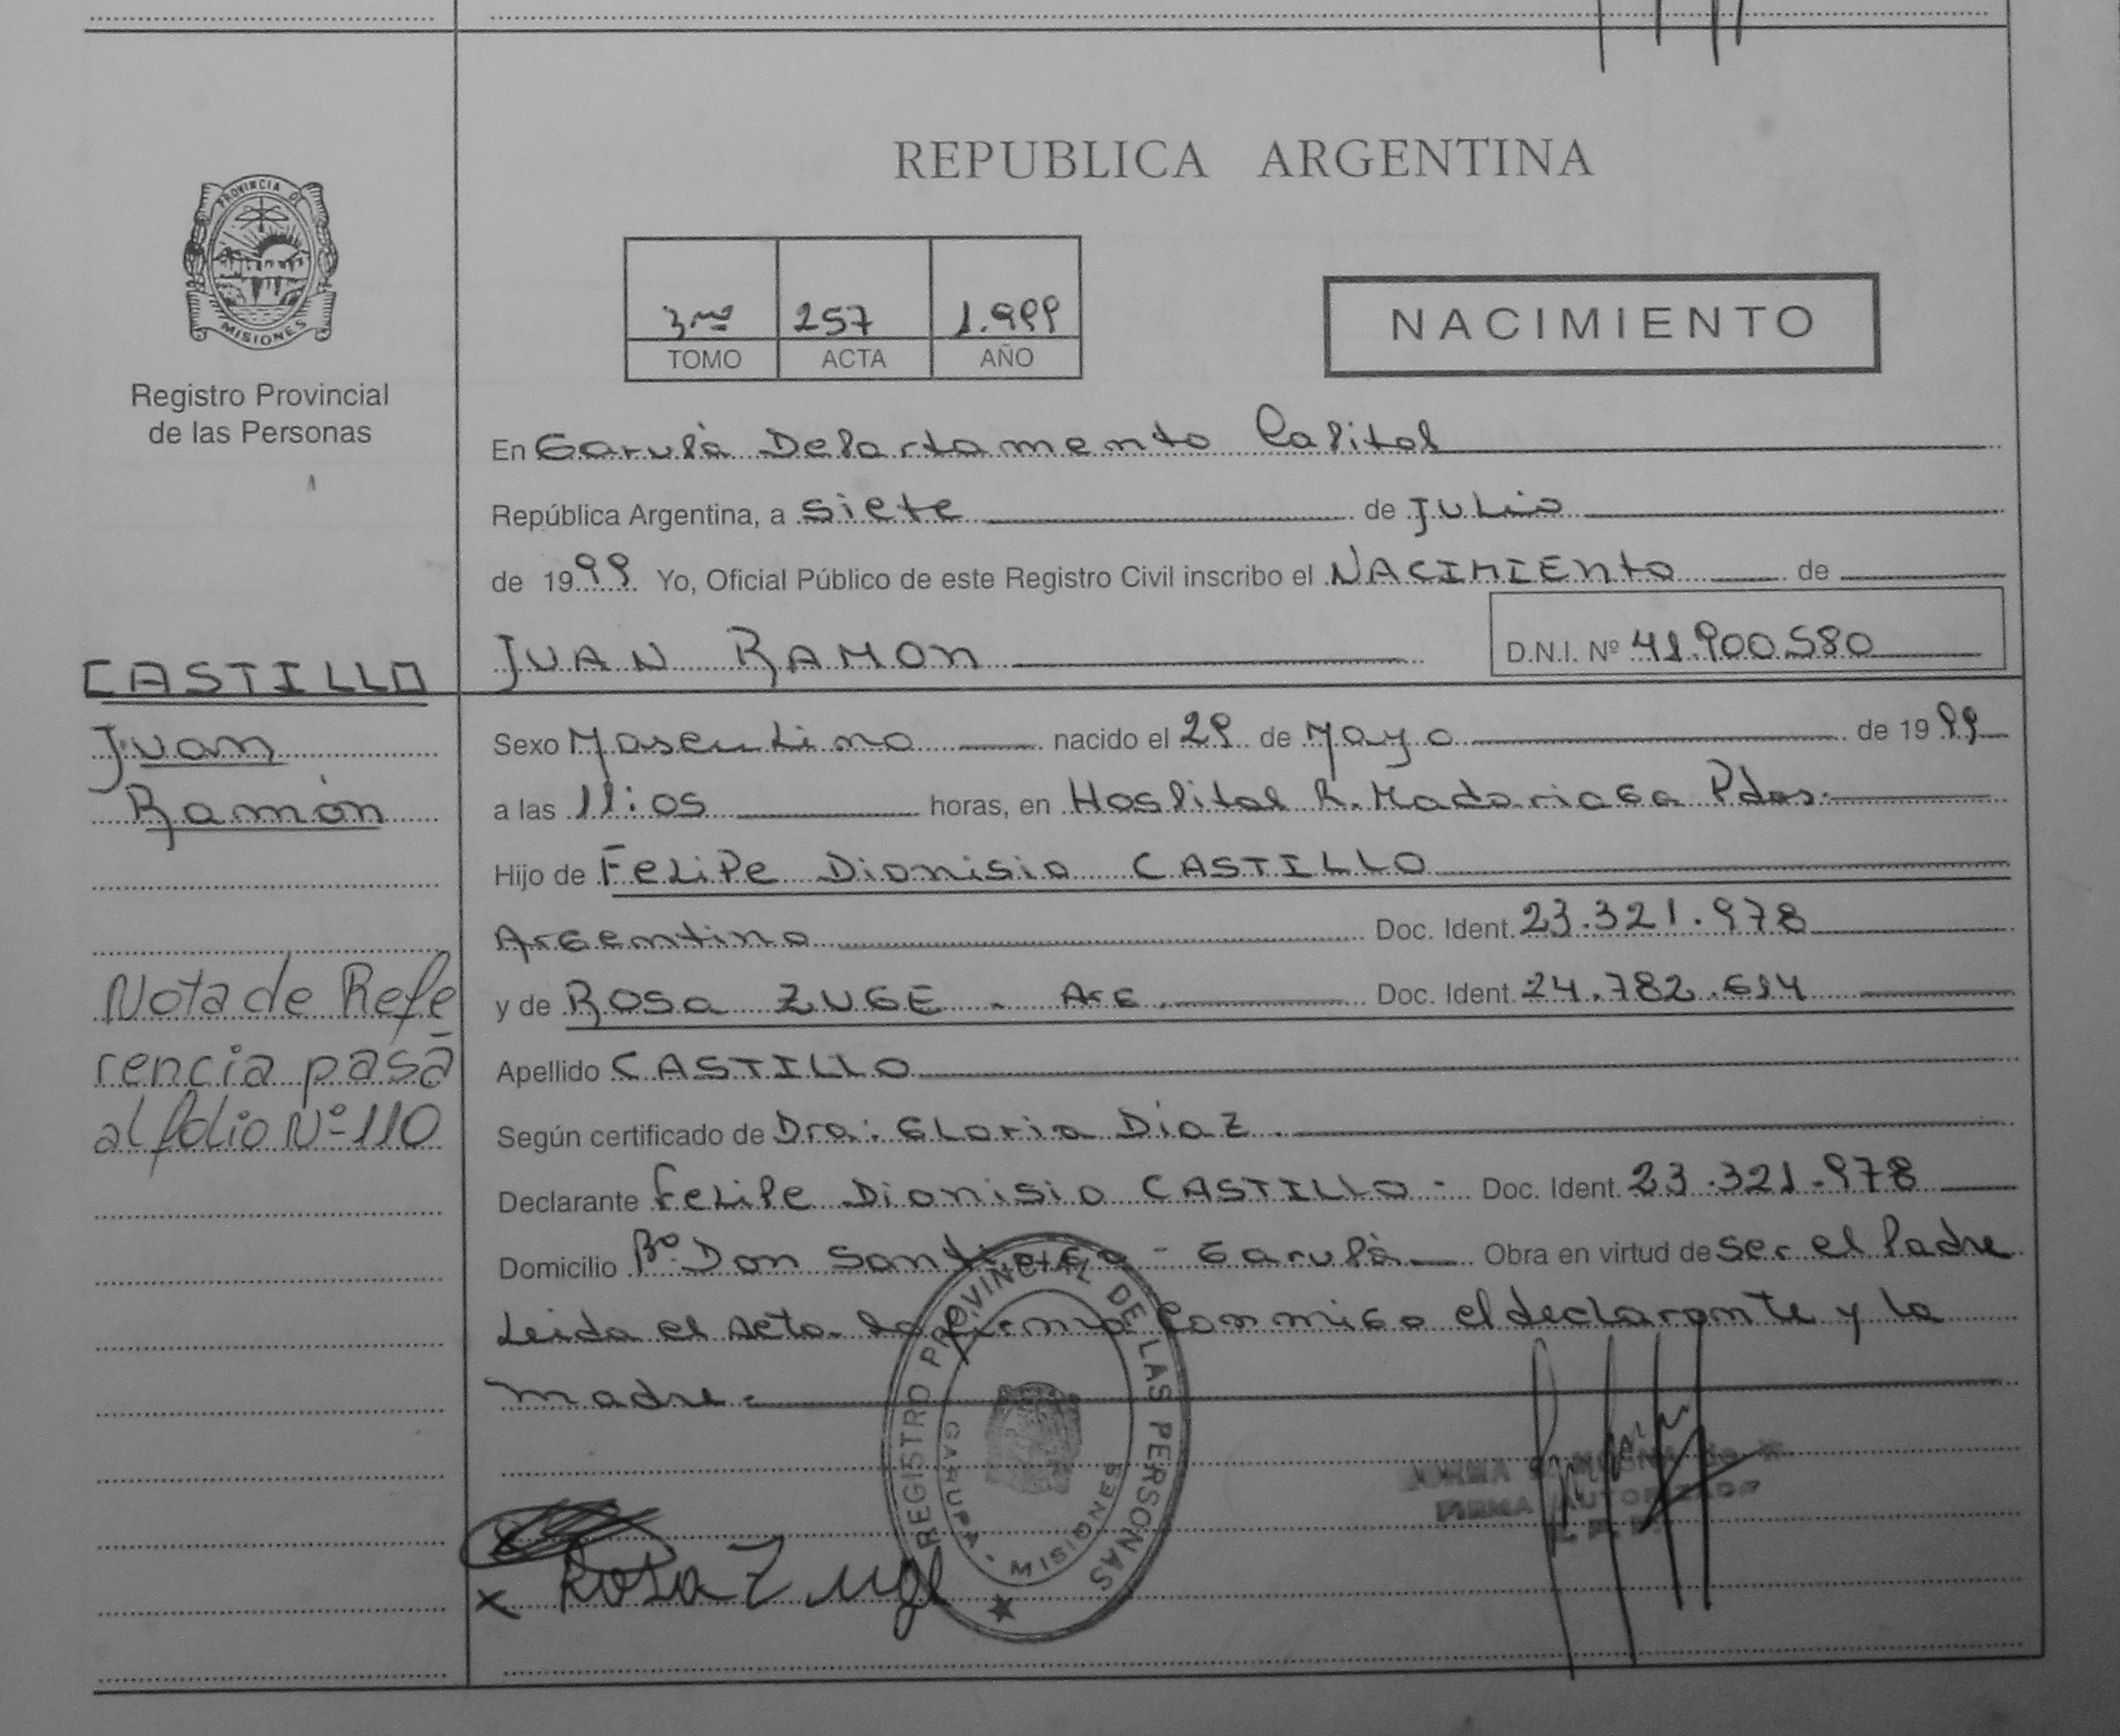 REPUBLICA ARGENTINA
PROVINCIA DE
MISIONES
Registro Provincial
de las Personas
3ro 257 1.999
TOMO ACTA AÑO
NACIMIENTO
En Garupá Departamento Capital
República Argentina, a siete de Julio
de 1999 Yo, Oficial Público de este Registro Civil inscribo el NACIMIENto de
JUAN RAMON D.N.I. Nº 41.900.580
CASTILLO
Juan
Ramón
Sexo Masculino nacido el 29 de Mayo de 1999
a las 11:05 horas, en Hospital R. Madariaga Pdas.
Hijo de Felipe Dionisio CASTILLO
Argentino Doc. Ident. 23.321.978
y de Rosa ZUGE - Arg. Doc. Ident. 24.782.614
Apellido CASTILLO
Según certificado de Dra. Gloria Diaz.
Declarante Felipe Dionisio CASTILLO - Doc. Ident. 23.321.978
Domicilio Bº Don Santiago - Garupá Obra en virtud de ser el Padre
Leida el acta la firma conmigo el declarante y la
madre.
Nota de Refe
rencia pasa
al folio Nº 110
REGISTRO PROVINCIAL DE LAS PERSONAS
GARUPA - MISIONES
FIRMA AUTORIZADA
x Rosa Zuge